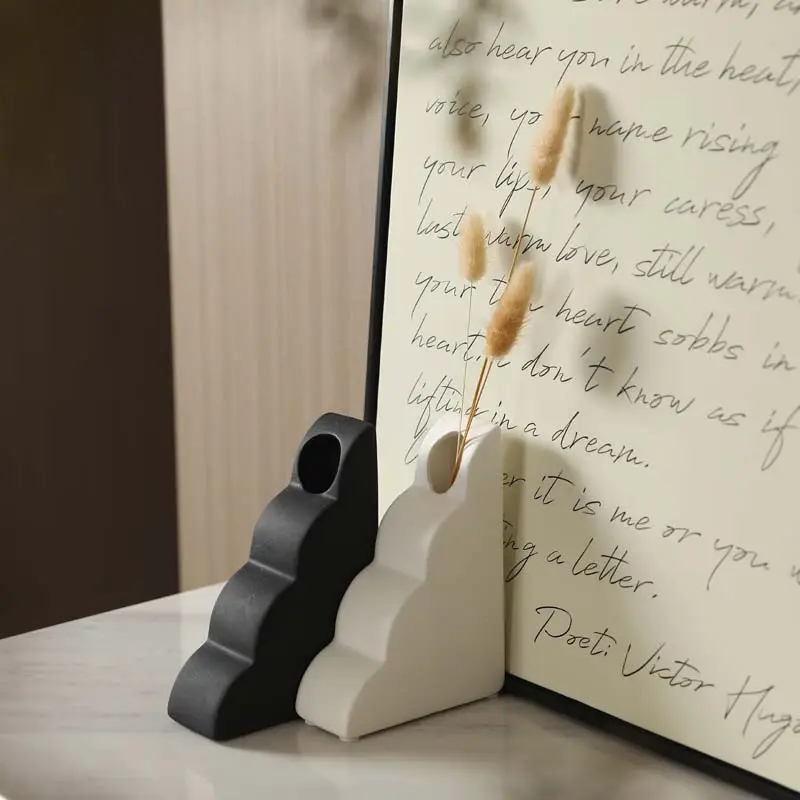 warm, an
also hear you in the heat,
voice, yo name rising
your lips, your caress,
last warm love, still warm
your heart sobbs in
heart. I don't know as if
lifting in a dream.
er it is me or you w
ing a letter.
Poet: Victor Hugo